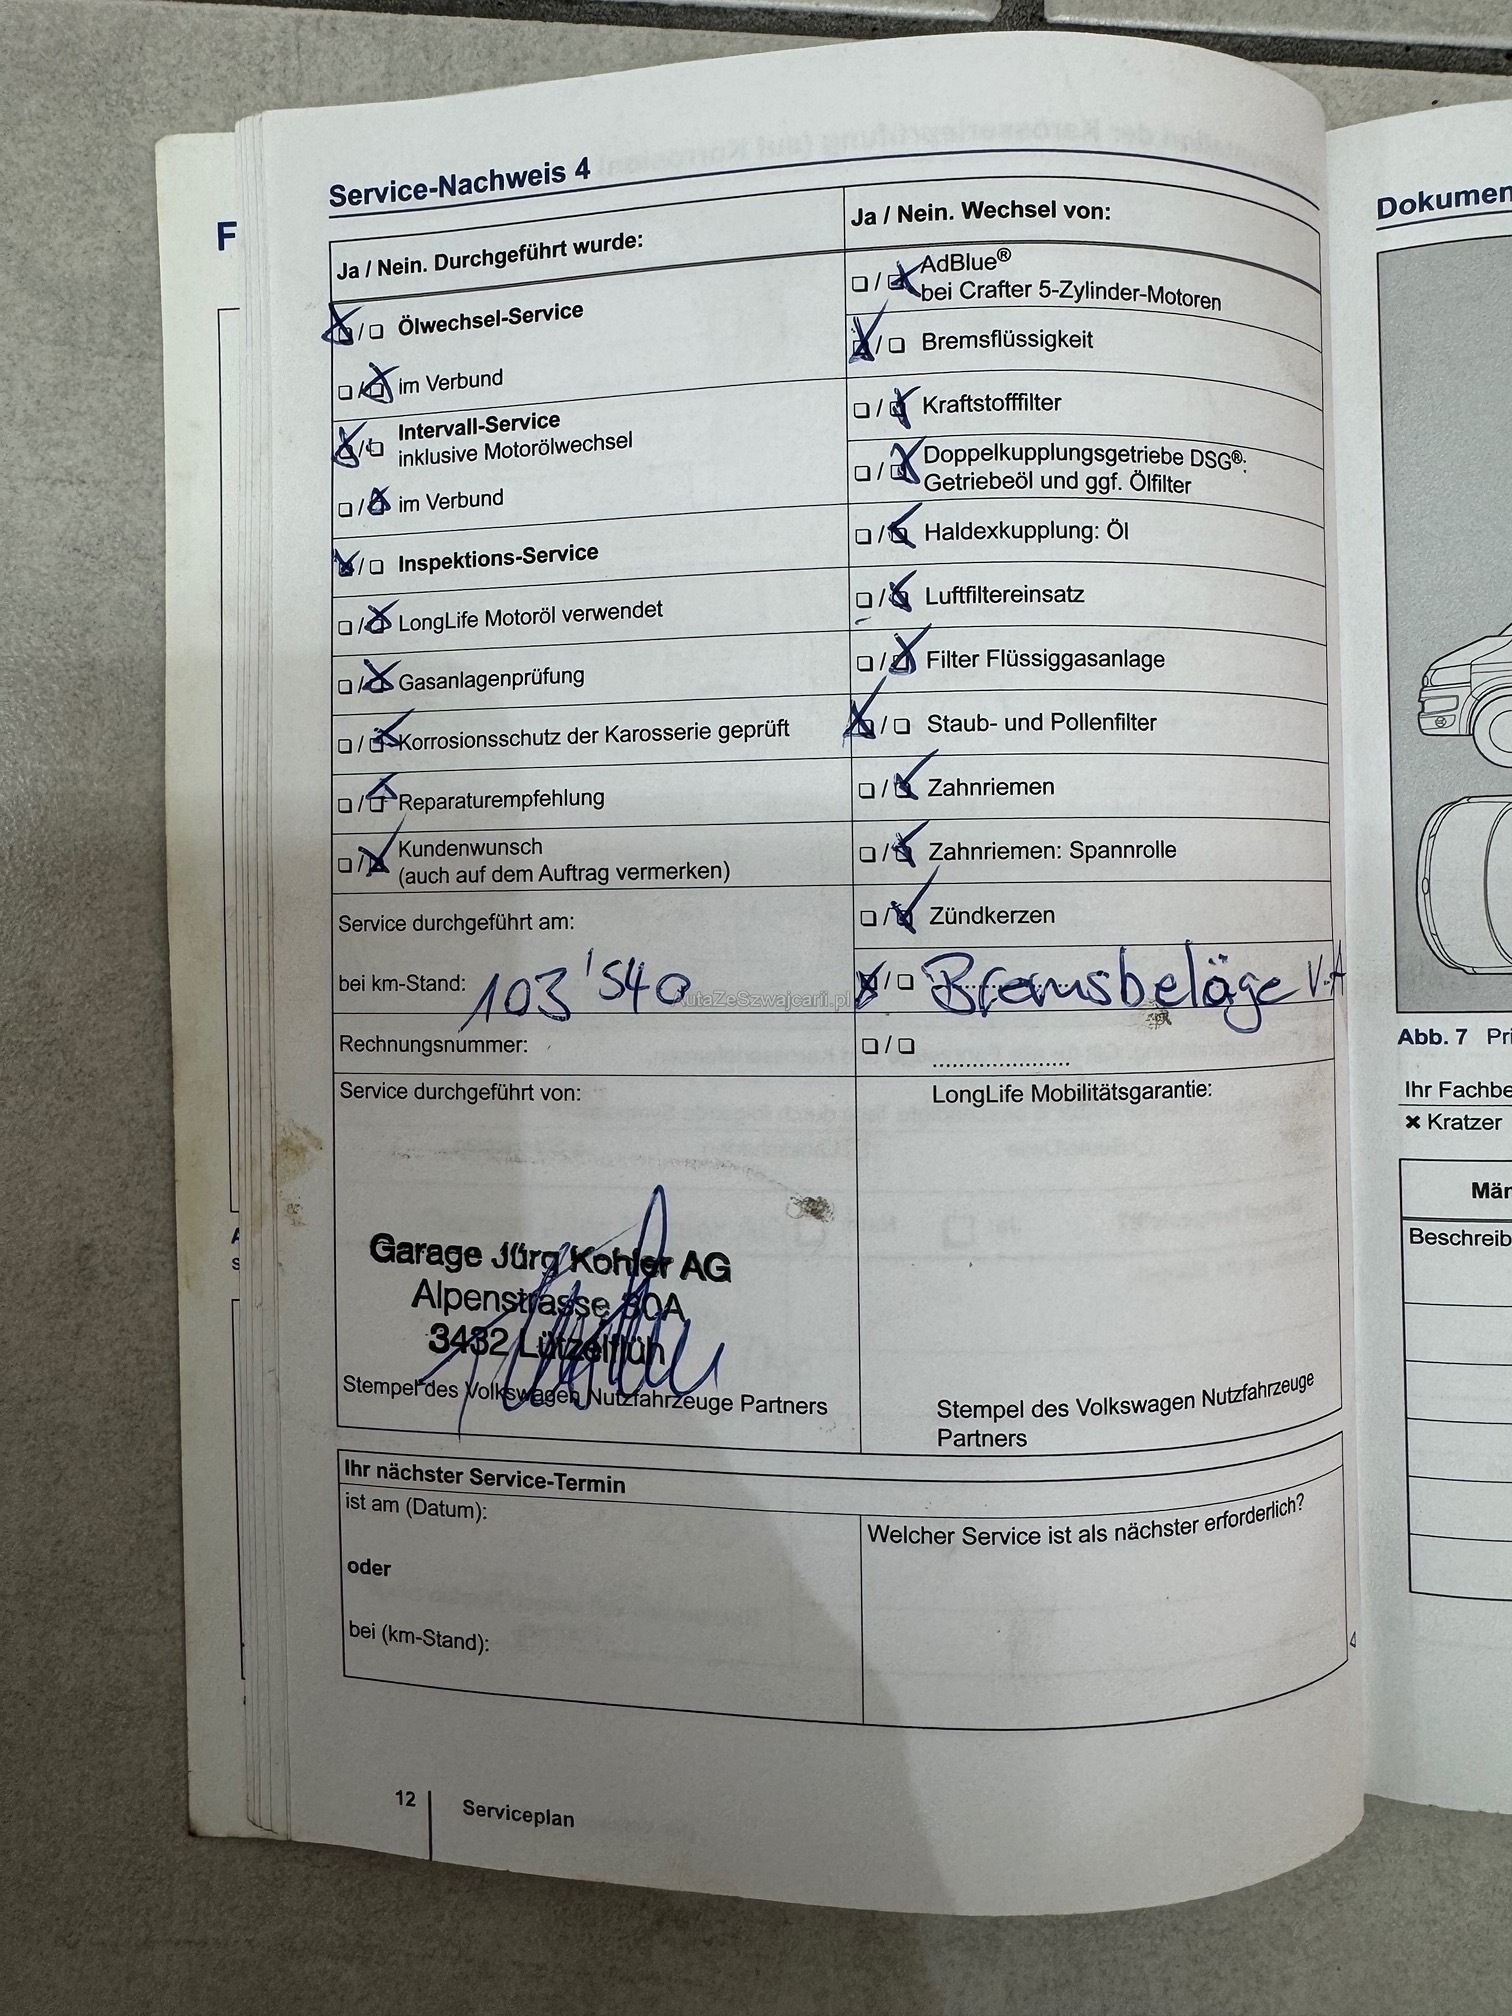 Service-Nachweis 4
Ja / Nein. Durchgeführt wurde:
Ölwechsel-Service
im Verbund
Intervall-Service
inklusive Motorölwechsel
im Verbund
Inspektions-Service
LongLife Motoröl verwendet
Gasanlagenprüfung
Korrosionsschutz der Karosserie geprüft
Reparaturempfehlung
Kundenwunsch
(auch auf dem Auftrag vermerken)
Service durchgeführt am:
bei km-Stand: 103'540
Rechnungsnummer:
Service durchgeführt von:
Garage Jürg Kohler AG
Alpenstrasse 30A
3432 Lützelflüh
Stempel des Volkswagen Nutzfahrzeuge Partners
Ja / Nein. Wechsel von:
AdBlue®
bei Crafter 5-Zylinder-Motoren
Bremsflüssigkeit
Kraftstofffilter
Doppelkupplungsgetriebe DSG®:
Getriebeöl und ggf. Ölfilter
Haldexkupplung: Öl
Luftfiltereinsatz
Filter Flüssiggasanlage
Staub- und Pollenfilter
Zahnriemen
Zahnriemen: Spannrolle
Zündkerzen
Bremsbeläge V.A
LongLife Mobilitätsgarantie:
Stempel des Volkswagen Nutzfahrzeuge
Partners
Ihr nächster Service-Termin
ist am (Datum):
oder
bei (km-Stand):
Welcher Service ist als nächster erforderlich?
12 Serviceplan
AutaZeSzwajcarii.pl
F
Dokumen
Abb. 7 Pri
Ihr Fachbe
Kratzer
Män
Beschreib